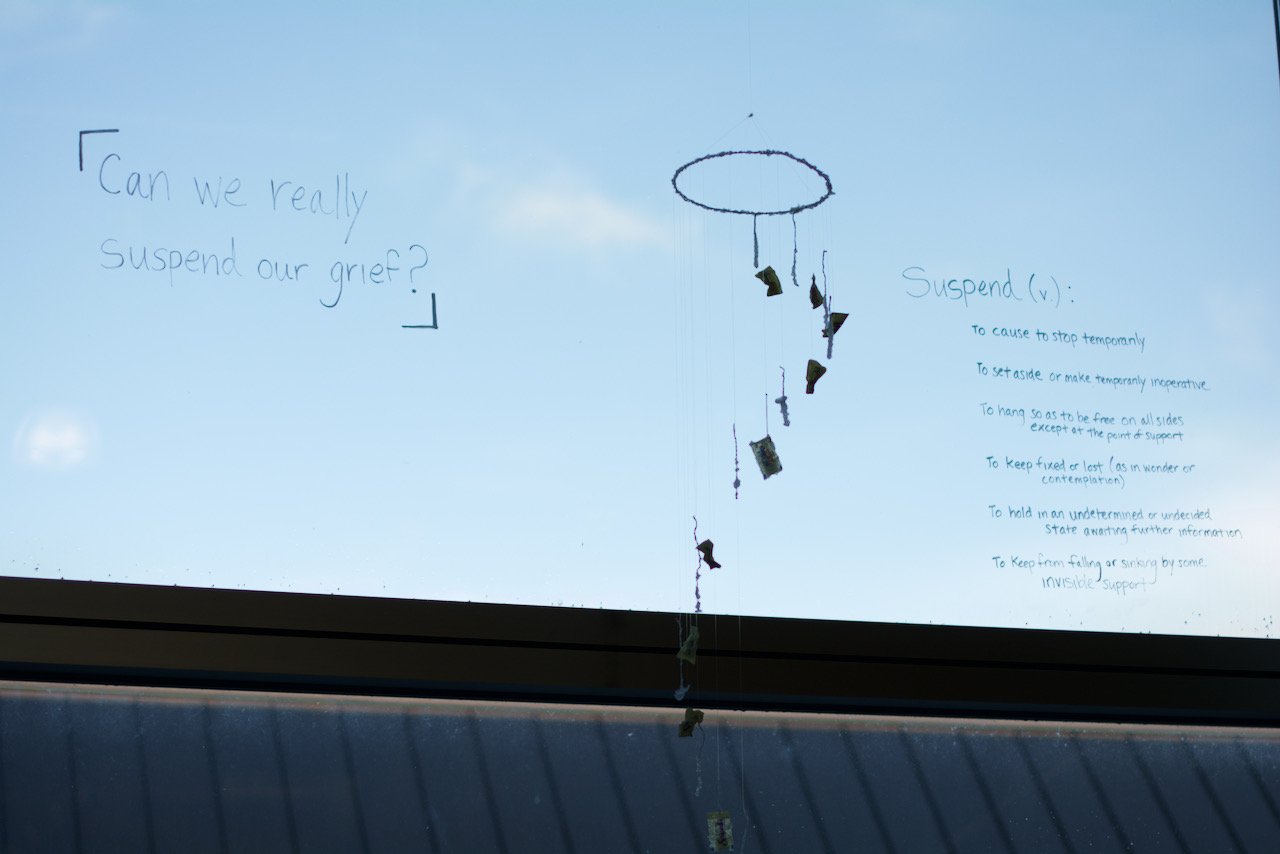 Can we really
suspend our grief?
Suspend (v.):
To cause to stop temporarily
To set aside or make temporarily inoperative
To hang so as to be free on all sides
except at the point of support
To keep fixed or lost (as in wonder or
contemplation)
To hold in an undetermined or undecided
state awaiting further information
To keep from falling or sinking by some
invisible support